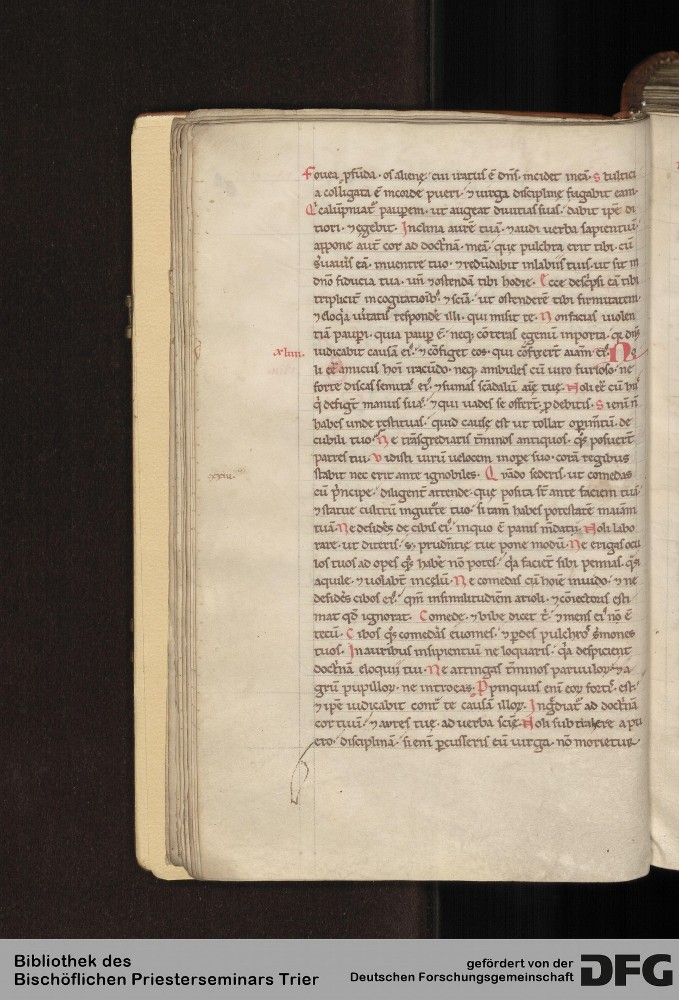 Fovea ꝓfūda · os alienę · cui iratus ē dn̄s · incidet in eā · Stultici
a colligata ē in corde pueri · ⁊ virga disciplinę fugabit eam ·
Qͥ calūpniatᷣ pauperem · ut augeat divitias suas · dabit ip̄e di
tiori · ⁊ egebit · Inclina aurē tuā · ⁊ audi verba sapientiū ·
appone aut̄ cor ad doctͥnā · meā · que pulchra erit tibi · cū
s̄vaveris eā · in ventre tuo · ⁊ redūdabit in labiis tuis · ut sit in
dn̄o fiducia tua · un̄ ⁊ ostendā tibi hodie · Ecce descͥpsi eā tibi
tripliciť in cogitationibꝰ ⁊ sciā · ut ostenderē tibi firmitatem ·
⁊ eloqͥa veritatis respondē illi · qui misit te · Non facias violen
tiā pauꝑi · quia pauꝑ ē · neqꝫ cōteras egenū in porta · qͥ dn̄s
xliiii.
iudicabit causā eiꝰ · ⁊ cōfiget eos · qui cōfixerīt aīam eiꝰ · No
li ēe amicus hoī iracūdo · neqꝫ ambules cū viro furioso · ne
forte discas semitaſ eiꝰ · ⁊ sumas scādalū aīę tuę · Noli ēe cū hiſ
qͥ defigūt manus suaſ · ⁊ qui vades se offerūt · ꝓ debitis · Si enī n̄
habes unde restituas · quid causę est ut tollat operim̄tū · de
cubili tuo · Ne trāsgrediaris t̄minos antiquos · qͦs posuer̄t
patres tui · Vidisti virū velocem in opere suo · corā regibus
xxiii.
stabit nec erit ante ignobiles · Qͣndo sederis · ut comedas
cū pͥncipe · diligent̄ attende · quę posita sͭ ante faciem tuā
⁊ statue cultrū in guture tuo · si tam̄ habes potestatē in aīam
tuā · Ne desiderēs de cibis eiꝰ · in quo ē panis m̄dacii · Noli labo
rare · ut diteris · sꝫ prudn̄tię tuę pone modū · Ne erigas ocu
los tuos ad opes qͣs habē nō potes · qͥa faciēt sibi pennas · qͣsi
aquile · ⁊ volabūt in cęlū · Ne comedas cū hoīe invido · ⁊ ne
desiderēs cibos eiꝰ · qm̄ in similitudinem arioli · ⁊ coniectoris esti
mat qd̄ ignorat · Comede · ⁊ bibe dicet t̄ · ⁊ mens eiꝰ nō ē
tecū · Cibos qͦs comedēas evomes · ⁊ ꝑdes pulchroſ s̄mones
tuos · In auribus insipientiū ne loquaris · qͥa despicient
doctͥnā eloquii tui · Ne attingas t̄minos parvuloꝝ · ⁊ a
grū pupilloꝝ · ne introeas · Ppinquus enī eoꝝ fortiſ · est ·
⁊ ip̄e iudicabit contͣ te causā illoꝝ · Ingͤdiatᷣ ad doctͥnā
cor tuū · ⁊ aures tuę · ad verba scię · Noli subtrahere a pu
ero · disciplinā · si enī ꝑcusseris eū virga · nō morietur ·
Bibliothek des
Bischöflichen Priesterseminars Trier
gefördert von der
Deutschen Forschungsgemeinschaft
DFG